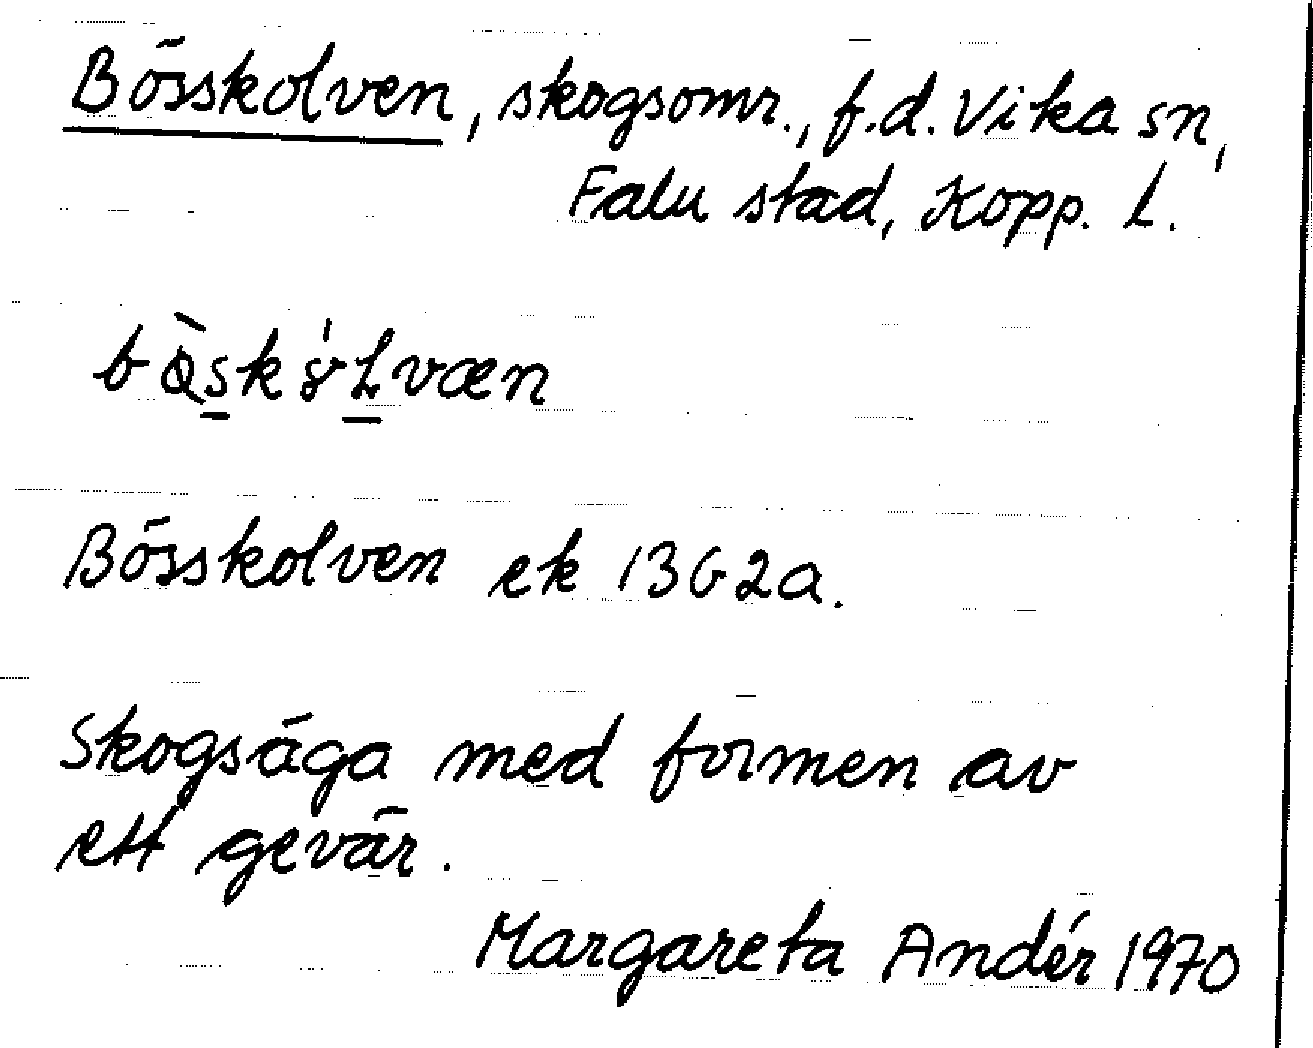 Bösskolven, skogsomr., f.d. Vika sn,
Falu stad, Kopp. L.
Bösskolven ek 13G2a.
Skogsäga med formen av
ett gevär.
Margareta Andér 1970